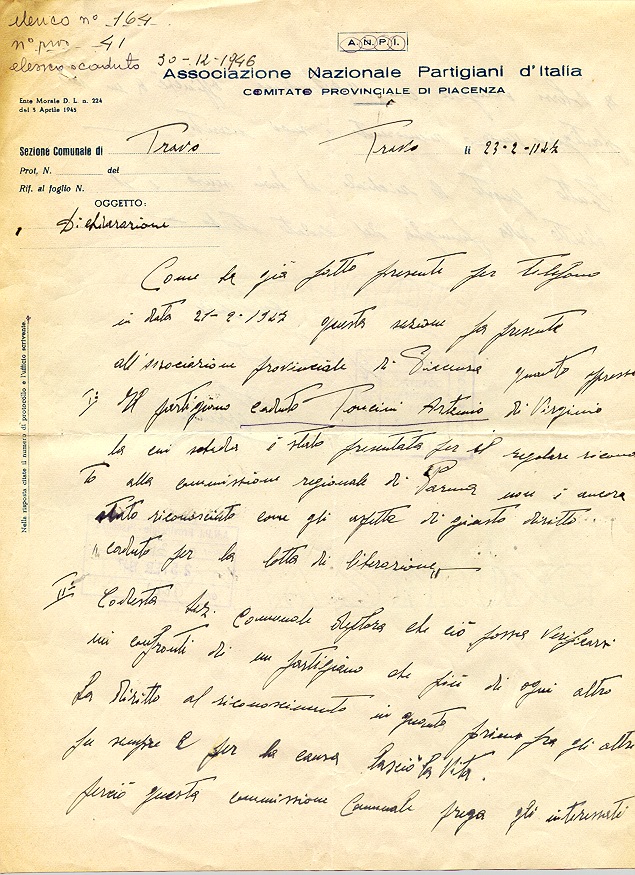 elenco n° 164
n° prov. 41
elenco caduto 30-12-1946
A. N. P. I.
Associazione Nazionale Partigiani d'Italia
COMITATO PROVINCIALE DI PIACENZA
Ente Morale D. L. n. 224
del 5 Aprile 1945
Sezione Comunale di Travo
Travo li 23-2-1947
Prot. N. del
Rif. al foglio N.
OGGETTO:
Dichiarazione
Come ha già fatto presente per telefono
in data 21-2-1947 questa sezione fa presente
all'associazione provinciale di Piacenza quanto appresso
I° Il partigiano caduto Toncini Artemio di Virginio
la cui scheda è stata presentata per il regolare ricono
to alla commissione regionale di Parma non è ancora
stato riconosciuto come gli aspetta di giusto diritto
"caduto per la lotta di liberazione"
II° Codesta Sez. Comunale deplora che ciò possa verificarsi
nei confronti di un partigiano che più di ogni altro
ha diritto al riconoscimento in quanto primo fra gli altri
fu sempre e per la causa lasciò la vita.
perciò questa commissione Comunale prega gli interessati
Nella risposta citare il numero di protocollo e l'ufficio scrivente.